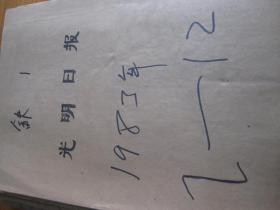 缺1
光明日报
1983年
7—12